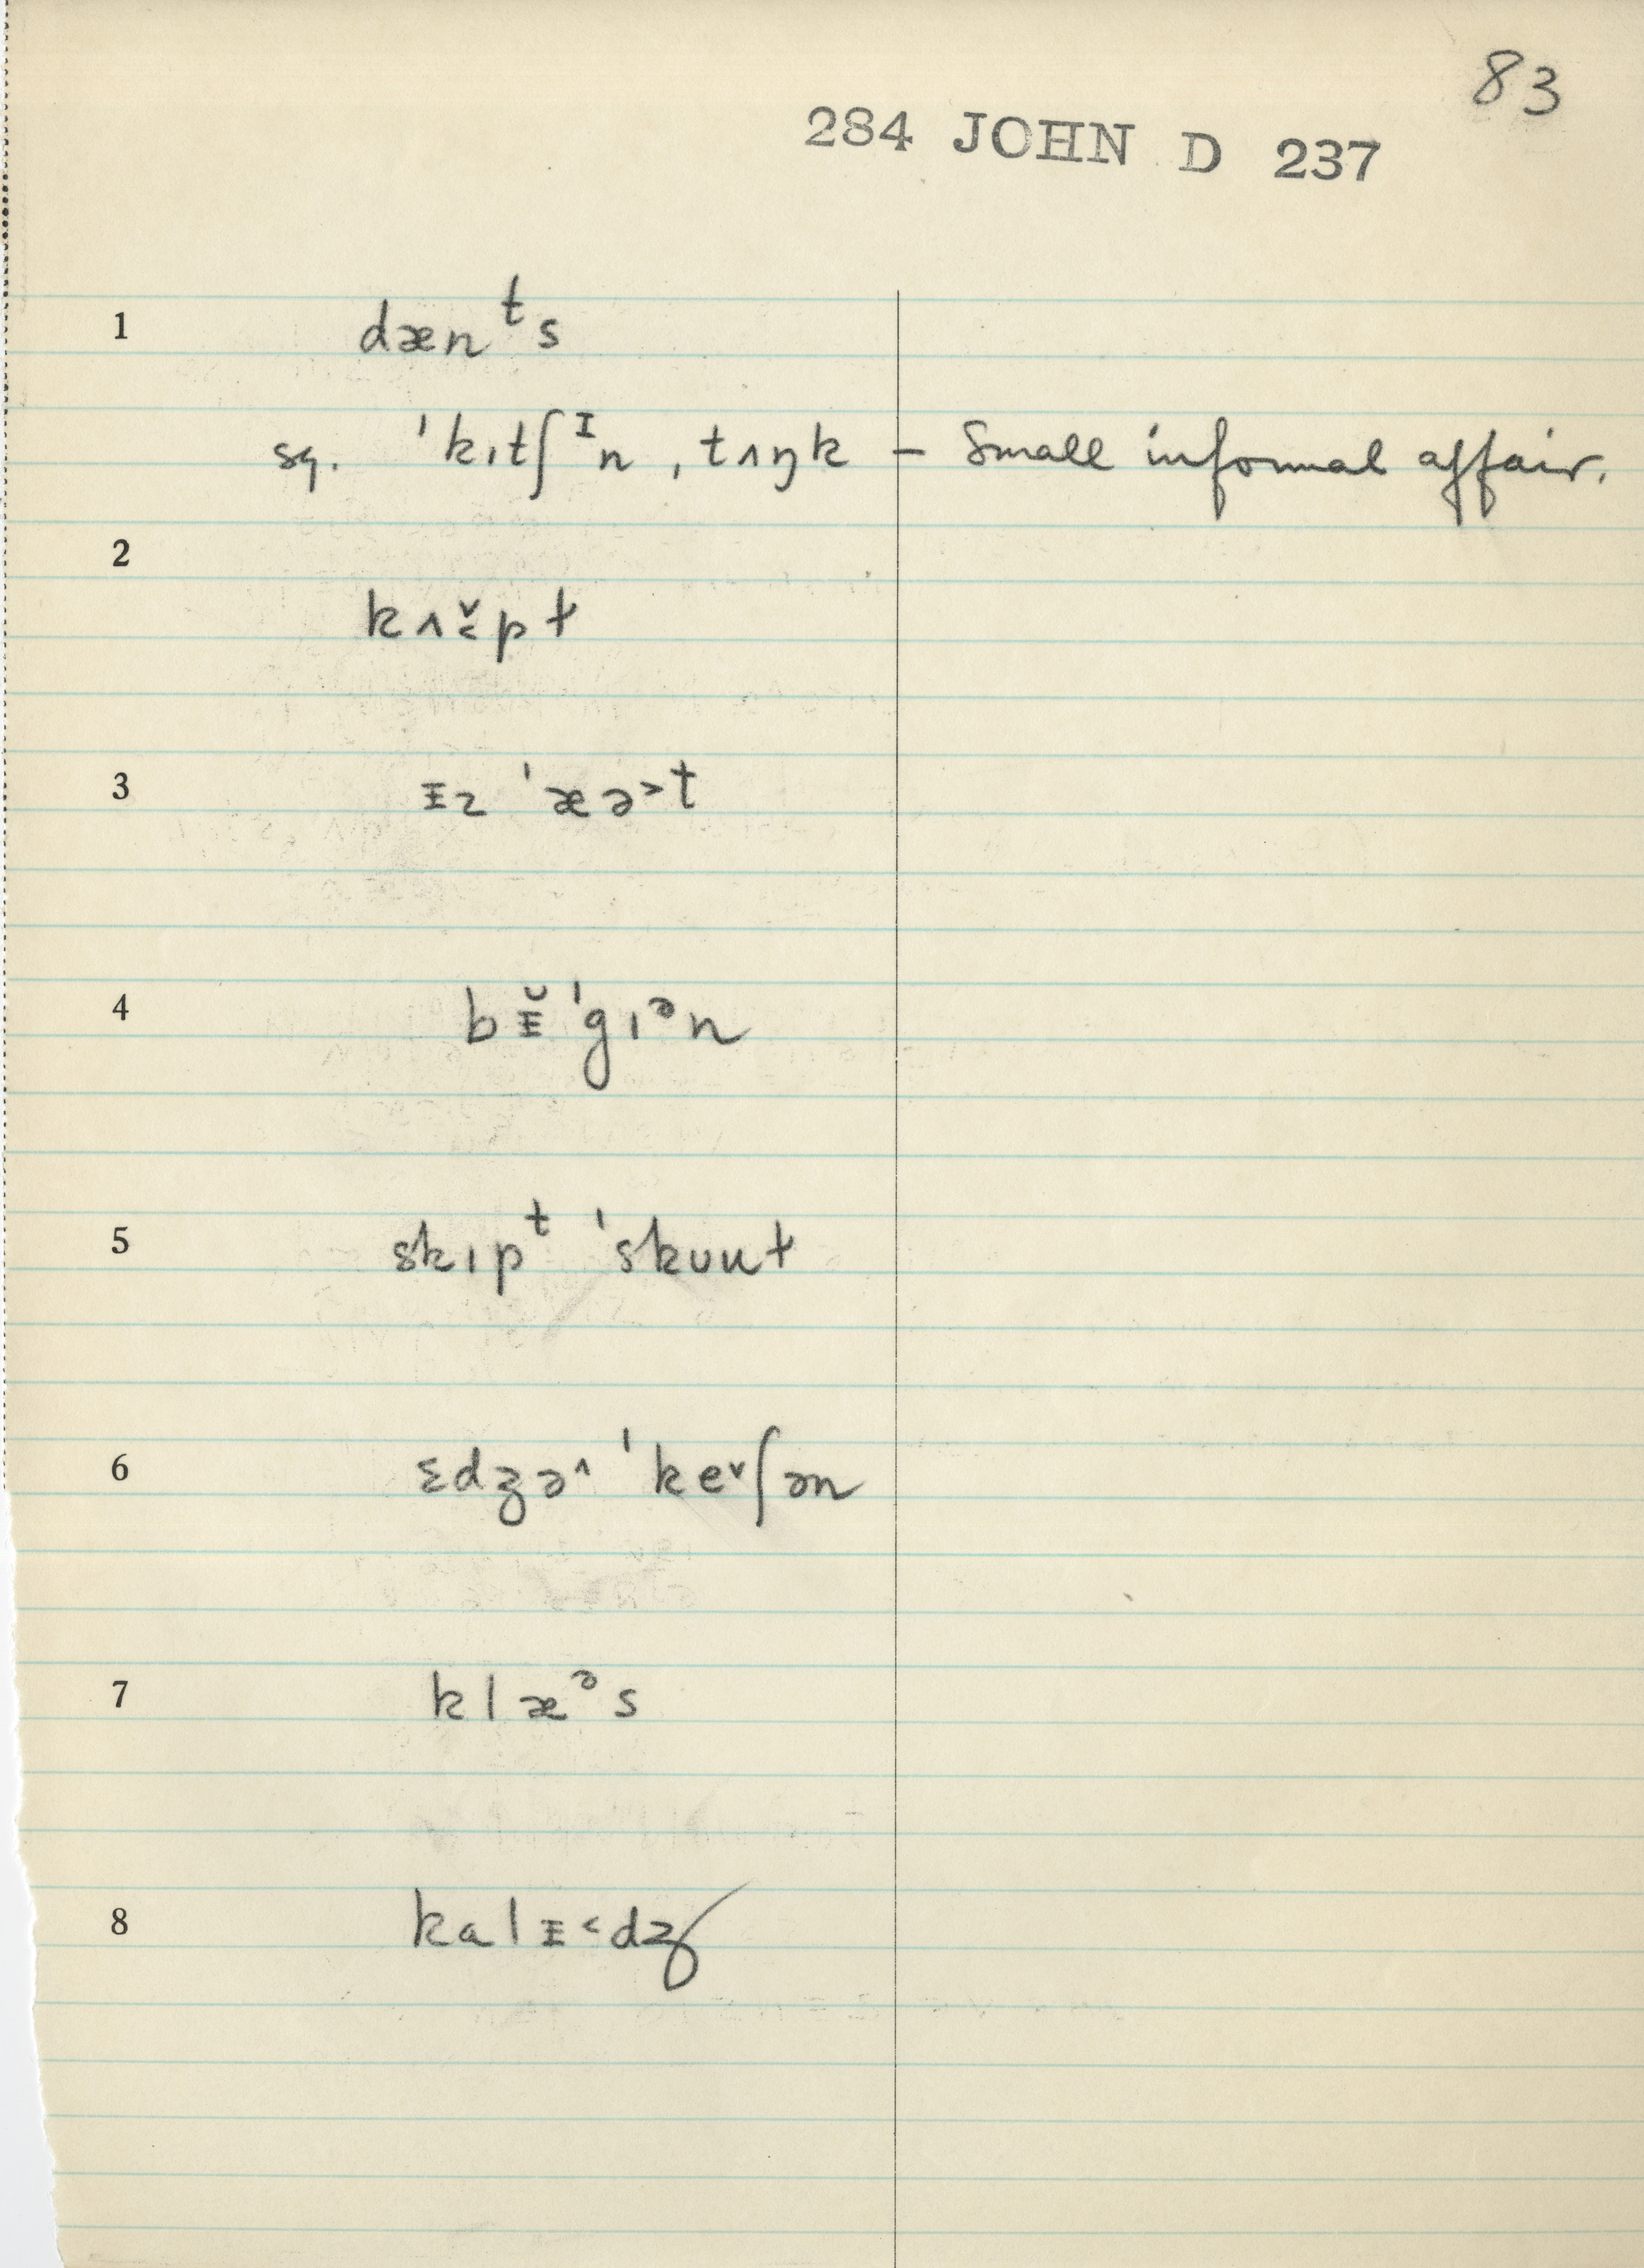 83
284 JOHN D 237
1 dænᵗs
sq. ˈkɪtʃᴵn ˌtʌŋk – Small informal affair.
2
kʌ˅˂pt
3 ᵻz ˈæə˃t
4 bᵻ̆ ˈgɪᵊn
5 skɪpᵗ ˈskuut
6 ɛdʒə˄ ˈke˅ʃən
7 klæᵊs
8 kalᵻ˂dʒ